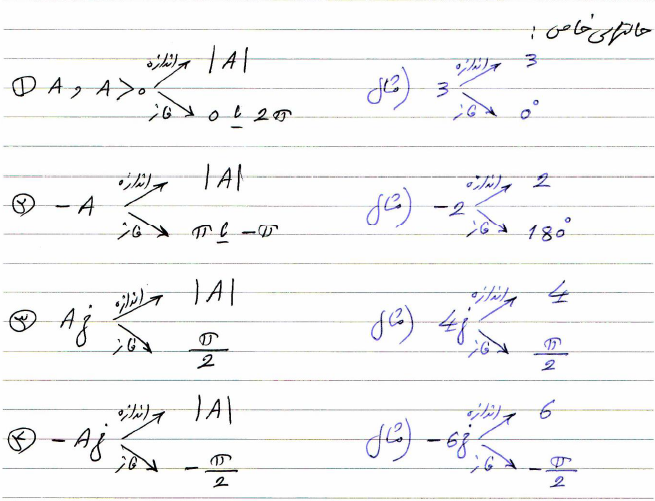 حالتهای خاص :
① A , A > 0 اندازه |A| فاز 0 یا 2π مثال) 3 اندازه 3 فاز 0°
② -A اندازه |A| فاز π یا -π مثال) -2 اندازه 2 فاز 180°
③ Aj اندازه |A| فاز π/2 مثال) 4j اندازه 4 فاز π/2
④ -Aj اندازه |A| فاز -π/2 مثال) -6j اندازه 6 فاز -π/2